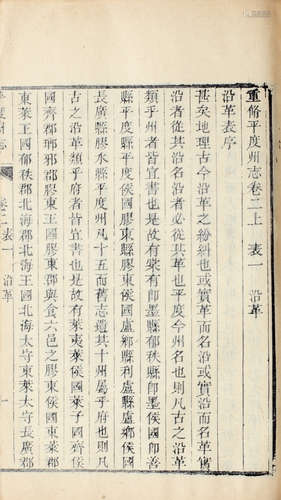 重脩平度州志卷二上 表一 沿革
沿革表序
甚矣地理古今沿革之紛糾也或實革而名沿或實沿而名革
沿者從其沿名沿者必從其革也平度今州名也則凡古之沿革
類乎州者皆宜書也是故有棠有卽墨縣郁秩縣卽墨侯國卽善
縣平度縣平度侯國膠東侯國盧鄉縣利盧鄉侯國
長廣縣膠水縣平度州凡十五而舊志遺其十州屬乎府也則凡
古之沿革類乎府者皆宜書也是故有萊夷萊侯國萊子國齊侯
國齊郡瑯邪郡膠東王國膠東郡與食六邑之膠東侯國東萊郡
東萊王國郁秩郡北海郡北海王國北海太守東萊太守長廣郡
卷二表一 沿革 一